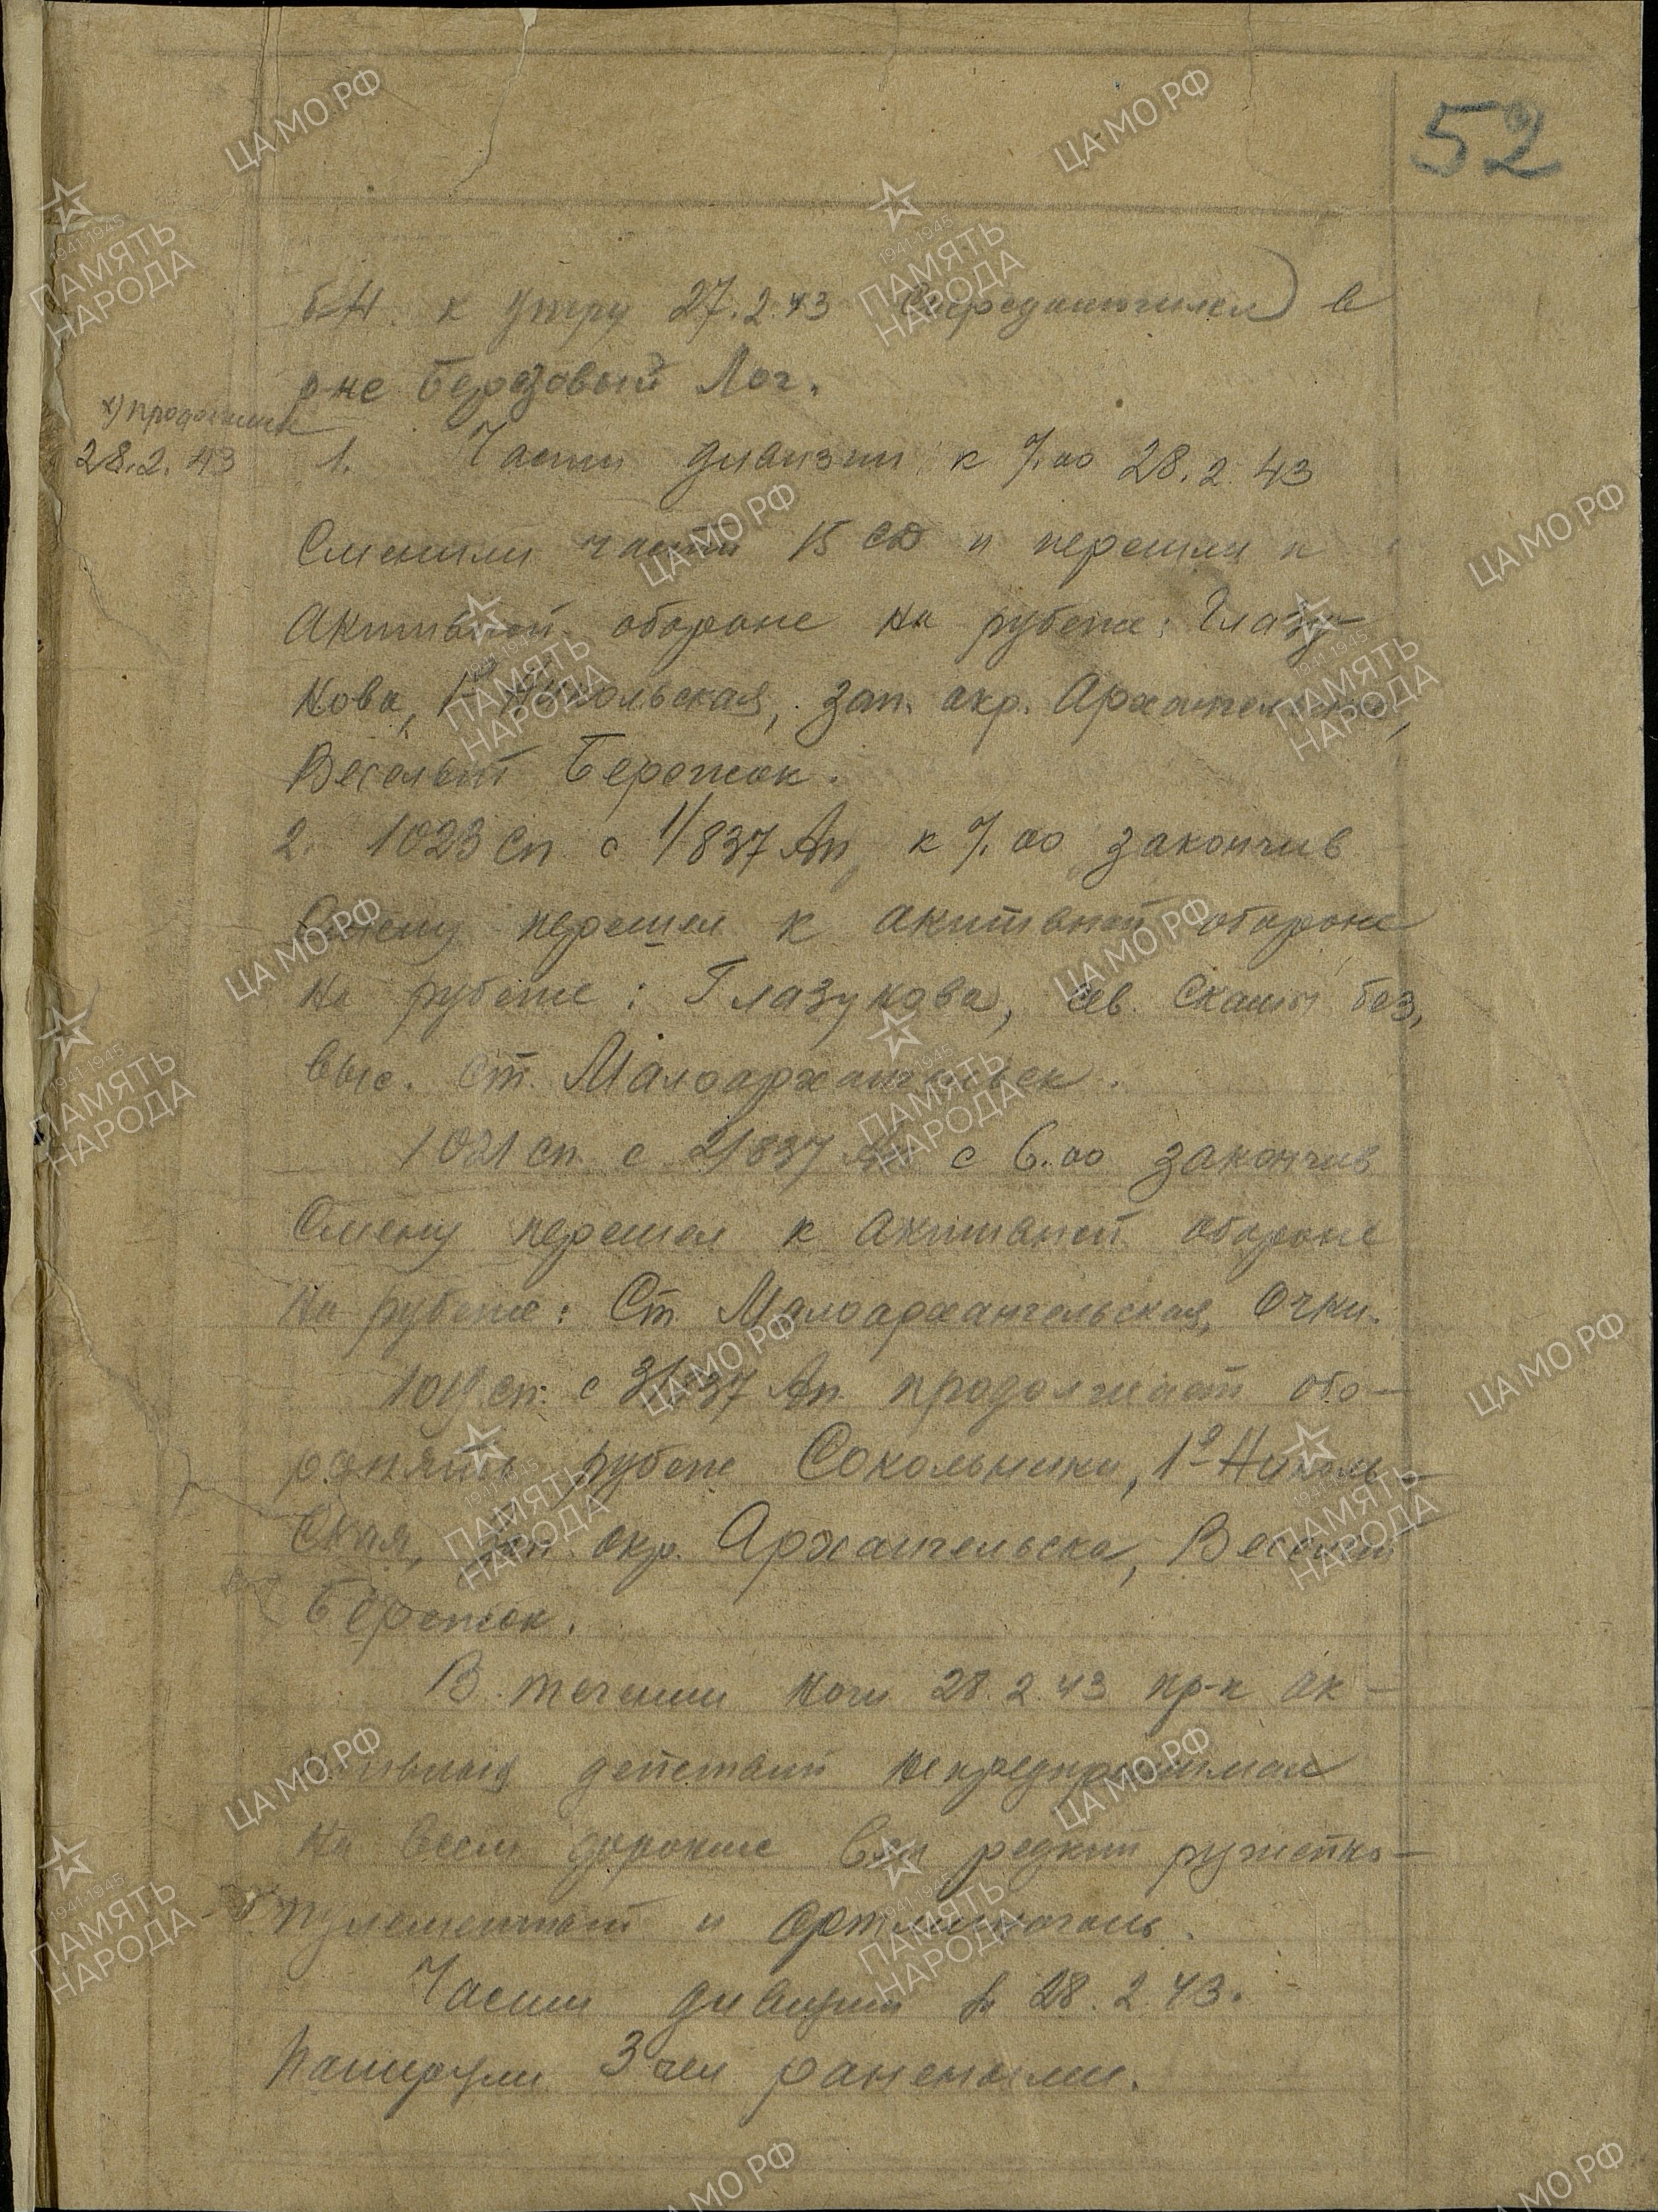 52
к утру 27.2.43 сосредоточился) в
р-не Березовый Лог.
х) продолжен
28.2.43 1. Части дивизии к 7.00 28.2.43
Сменили части 15 СД и перешли к
Активной обороне на рубеже: Глазу-
нова, 1-я Никольская, зап. окр. Архангельское,
Веселый Бережок.
2. 1023 сп с 1/837 Ап, к 7.00 закончив
Смену перешел к активной обороне
на рубеже: Глазунова, сев. Скаты без.
выс. ст. Малоархангельск.
1021 сп с 2/837 Ап с 6.00 закончив
Смену перешел к активной обороне
На рубеже: Ст. Малоархангельская, Очки.
1019 сп с 3/837 Ап продолжает обо-
ронять рубеж Сокольники, 1-я Николь-
ская, зап. окр. Архангельска, Веселый
Бережок.
В течении ночи 28.2.43 пр-к ак-
тивных действий не предпринимал
На всем фронте вел редкий ружейно-
пулеметный и артминогонь.
Части дивизии 28.2.43.
Потеряли 3 чел ранеными.